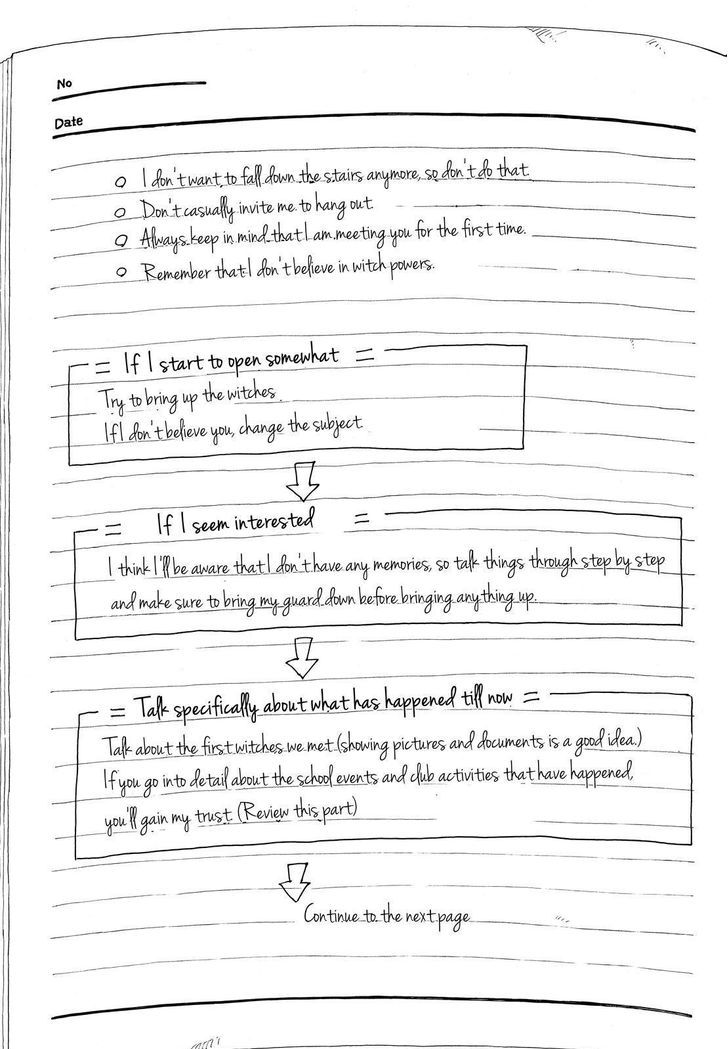 No
Date
o I don't want to fall down the stairs anymore, so don't do that
o Don't casually invite me to hang out
o Always keep in mind that I am meeting you for the first time.
o Remember that I don't believe in witch powers.
= If I start to open somewhat =
Try to bring up the witches.
If I don't believe you, change the subject
= If I seem interested =
I think I'll be aware that I don't have any memories, so talk things through step by step
and make sure to bring my guard down before bringing anything up.
= Talk specifically about what has happened till now =
Talk about the first witches we met (showing pictures and documents is a good idea.)
If you go into detail about the school events and club activities that have happened,
you'll gain my trust (Review this part)
Continue to the next page